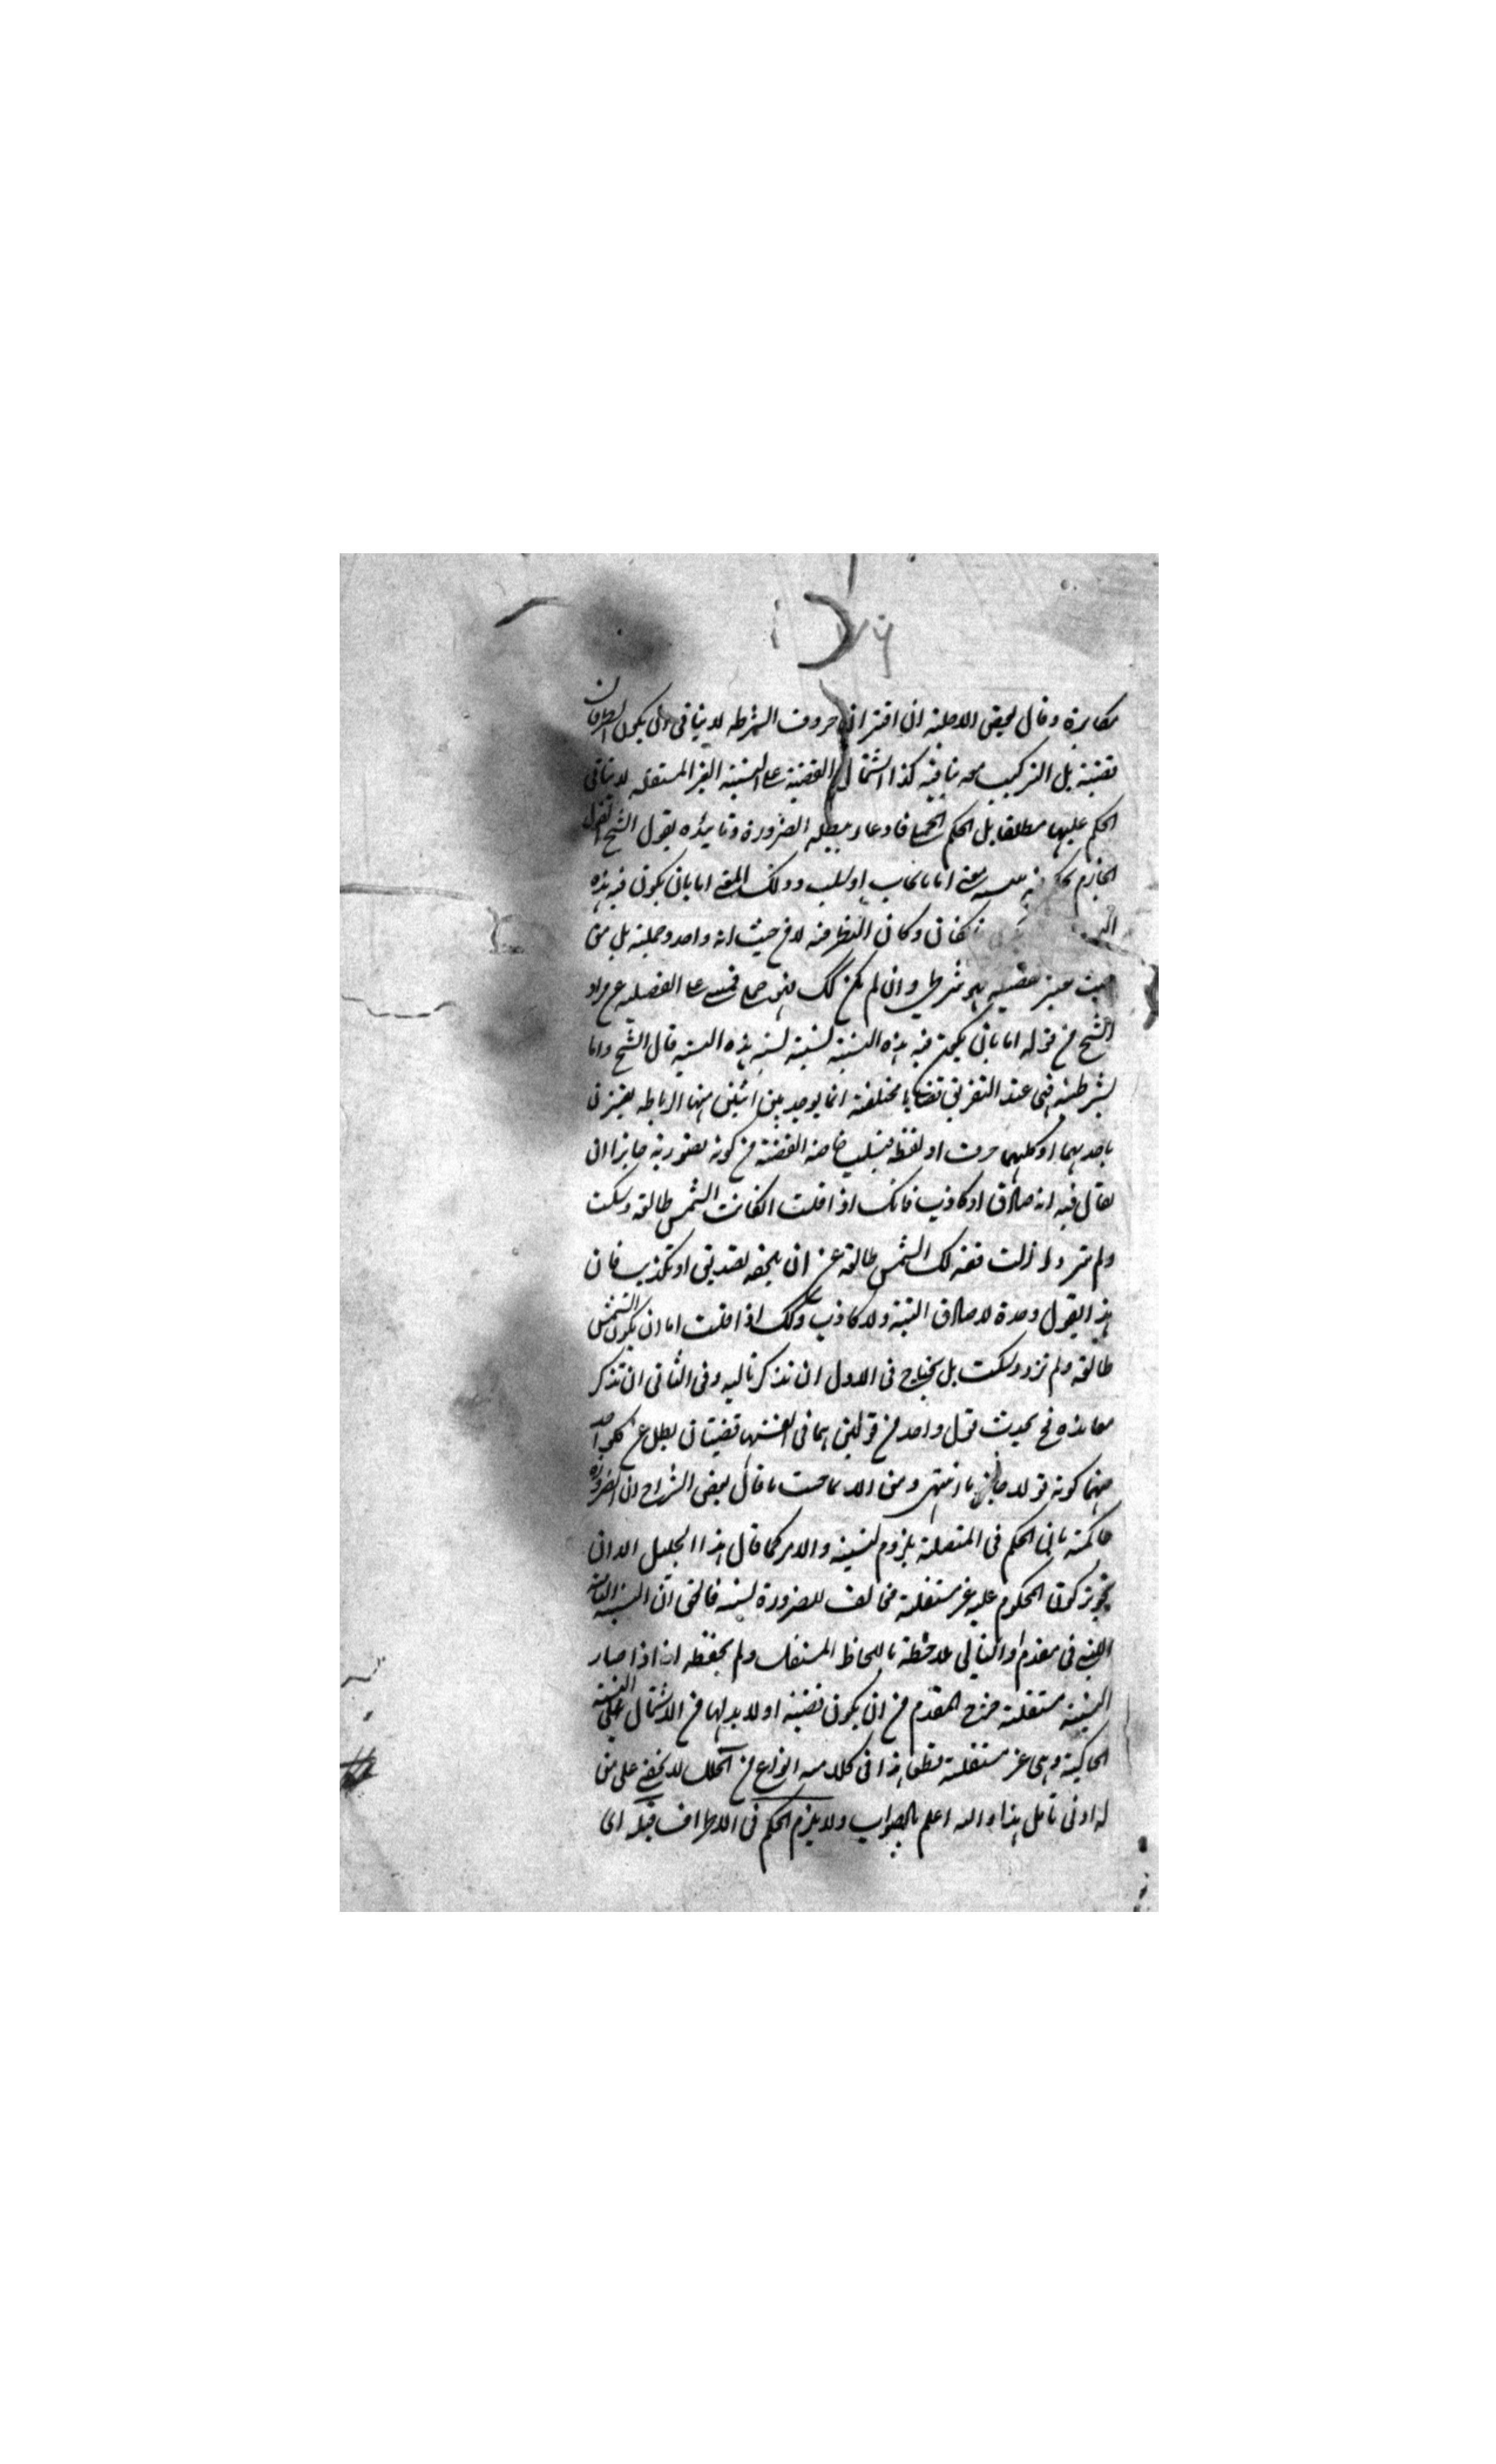 مكابرة وقال بعض الاجلة ان اقتران حروف الشرطه لا ينافى ان يكون الطرفان
قضية بل التركيب معه ينافيه كذا اشتمال القضية على النسبة الغير المستقله لا ينافى
الحكم عليها مطلقا بل الحكم الحملى فادعاء يبطله الضرورة وتاييده بقول الشيخ القول
الجازم يحكم فيه معنى اما بايجاب او سلب وذلك المعنى اما بان يكون فيه هذه
وكان النظر فيه لا من حيث انه واحد وجملة بل من
حيث يعتبر تفصيله فهو شرطى وان لم يكن كك فهو حملى
الشيخ من قوله اما بان يكون فيه هذه النسبة نسبة لسنه هذه النسبة قال الشيخ واما
الشرطية فهى عند التفريق قضايا مختلفة انما يوجد بين اثنين منها الرابطه يقترن
باحديهما او كليهما حرف او لفظ فيسلب خاصة القضية من كونه بصورته جايزا ان
يقال فيه انه صادق او كاذب فانك اذا قلت ان كانت الشمس طالعه وسكت
ولم تزد ازلت قولك الشمس طالعه عن ان يلحقه تصديق او تكذيب فان
هذا القول وحده لا صادق البتة ولا كاذب وكك اذا قلت اما ان يكون الشمس
طالعه ولم تزد وسكت بل يحتاج فى الاول ان تذكر تاليه وفى الثانى ان تذكر
معانده فح يحدث قول واحد من قولين هما فى انفسهما قضيتان بطل عن كل واحد
منهما كونه قولا جازما انتهى ومن الاعاجيب ما قال بعض الشراح ان الضرورة
حاكمة بان الحكم فى المتصلة بلزوم لنسبة والامر كما قال هذا الجليل الا ان
تجويز كون المحكوم عليه غير مستقلة مخالف للضرورة لسنه فالحق ان النسبة التامة
التى فى مقدم او التالى ملاحظة باللحاظ المستقل ولم يحفظه انه اذا صار
النسبة مستقلة خرج المقدم من ان يكون قضية او لا بد لها من الاشتمال على النسبة
الحاكية وهى غير مستقلة قطعا هذا فى كلامه انواع من الخلل لا يخفى على من
له ادنى تامل هذا والله اعلم بالصواب ولا يلزم الحكم فى الاطراف قبله اى